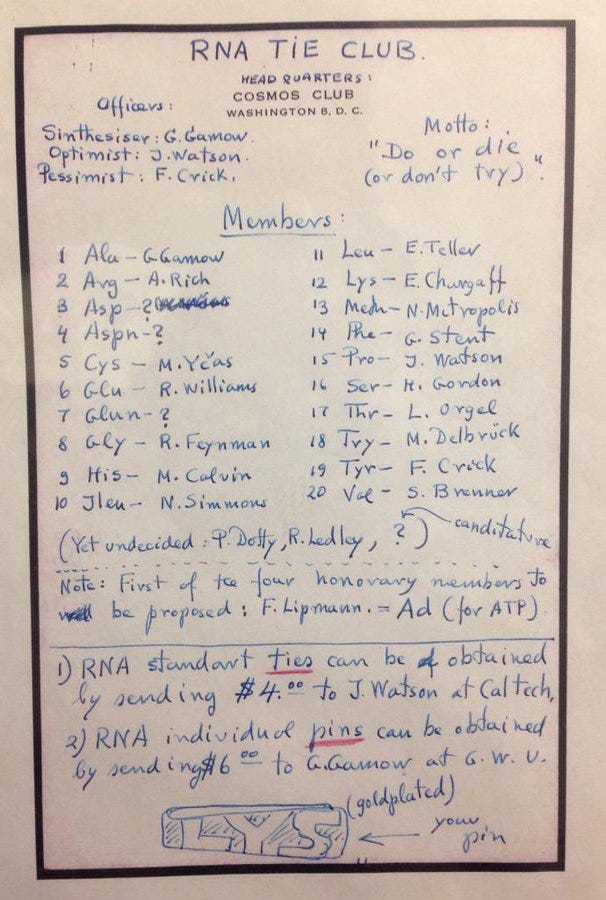 RNA TIE CLUB.
HEAD QUARTERS:
COSMOS CLUB
WASHINGTON 8, D. C.
Officers:
Sinthesiser: G. Gamow.
Optimist: J. Watson.
Pessimist: F. Crick.
Motto:
"Do or die
(or don't try)".
Members:
1 Ala - G. Gamow
2 Arg - A. Rich
3 Asp - ?
4 Aspn - ?
5 Cys - M. Yčas
6 Glu - R. Williams
7 Glun - ?
8 Gly - R. Feynman
9 His - M. Calvin
10 Ileu - N. Simmons
11 Leu - E. Teller
12 Lys - E. Chargaff
13 Meth - N. Metropolis
14 Phe - G. Stent
15 Pro - J. Watson
16 Ser - H. Gordon
17 Thr - L. Orgel
18 Try - M. Delbrück
19 Tyr - F. Crick
20 Val - S. Brenner
(Yet undecided: P. Dotty, R. Ledley, ?) canditature
Note: First of tee four honorary members to
be proposed: F. Lipmann. = Ad (for ATP).
1) RNA standart ties can be obtained
by sending $4.00 to J. Watson at Caltech,
2) RNA individual pins can be obtained
by sending $6 00 to G. Gamow at G. W. U.
(goldplated)
LYS
your
pin